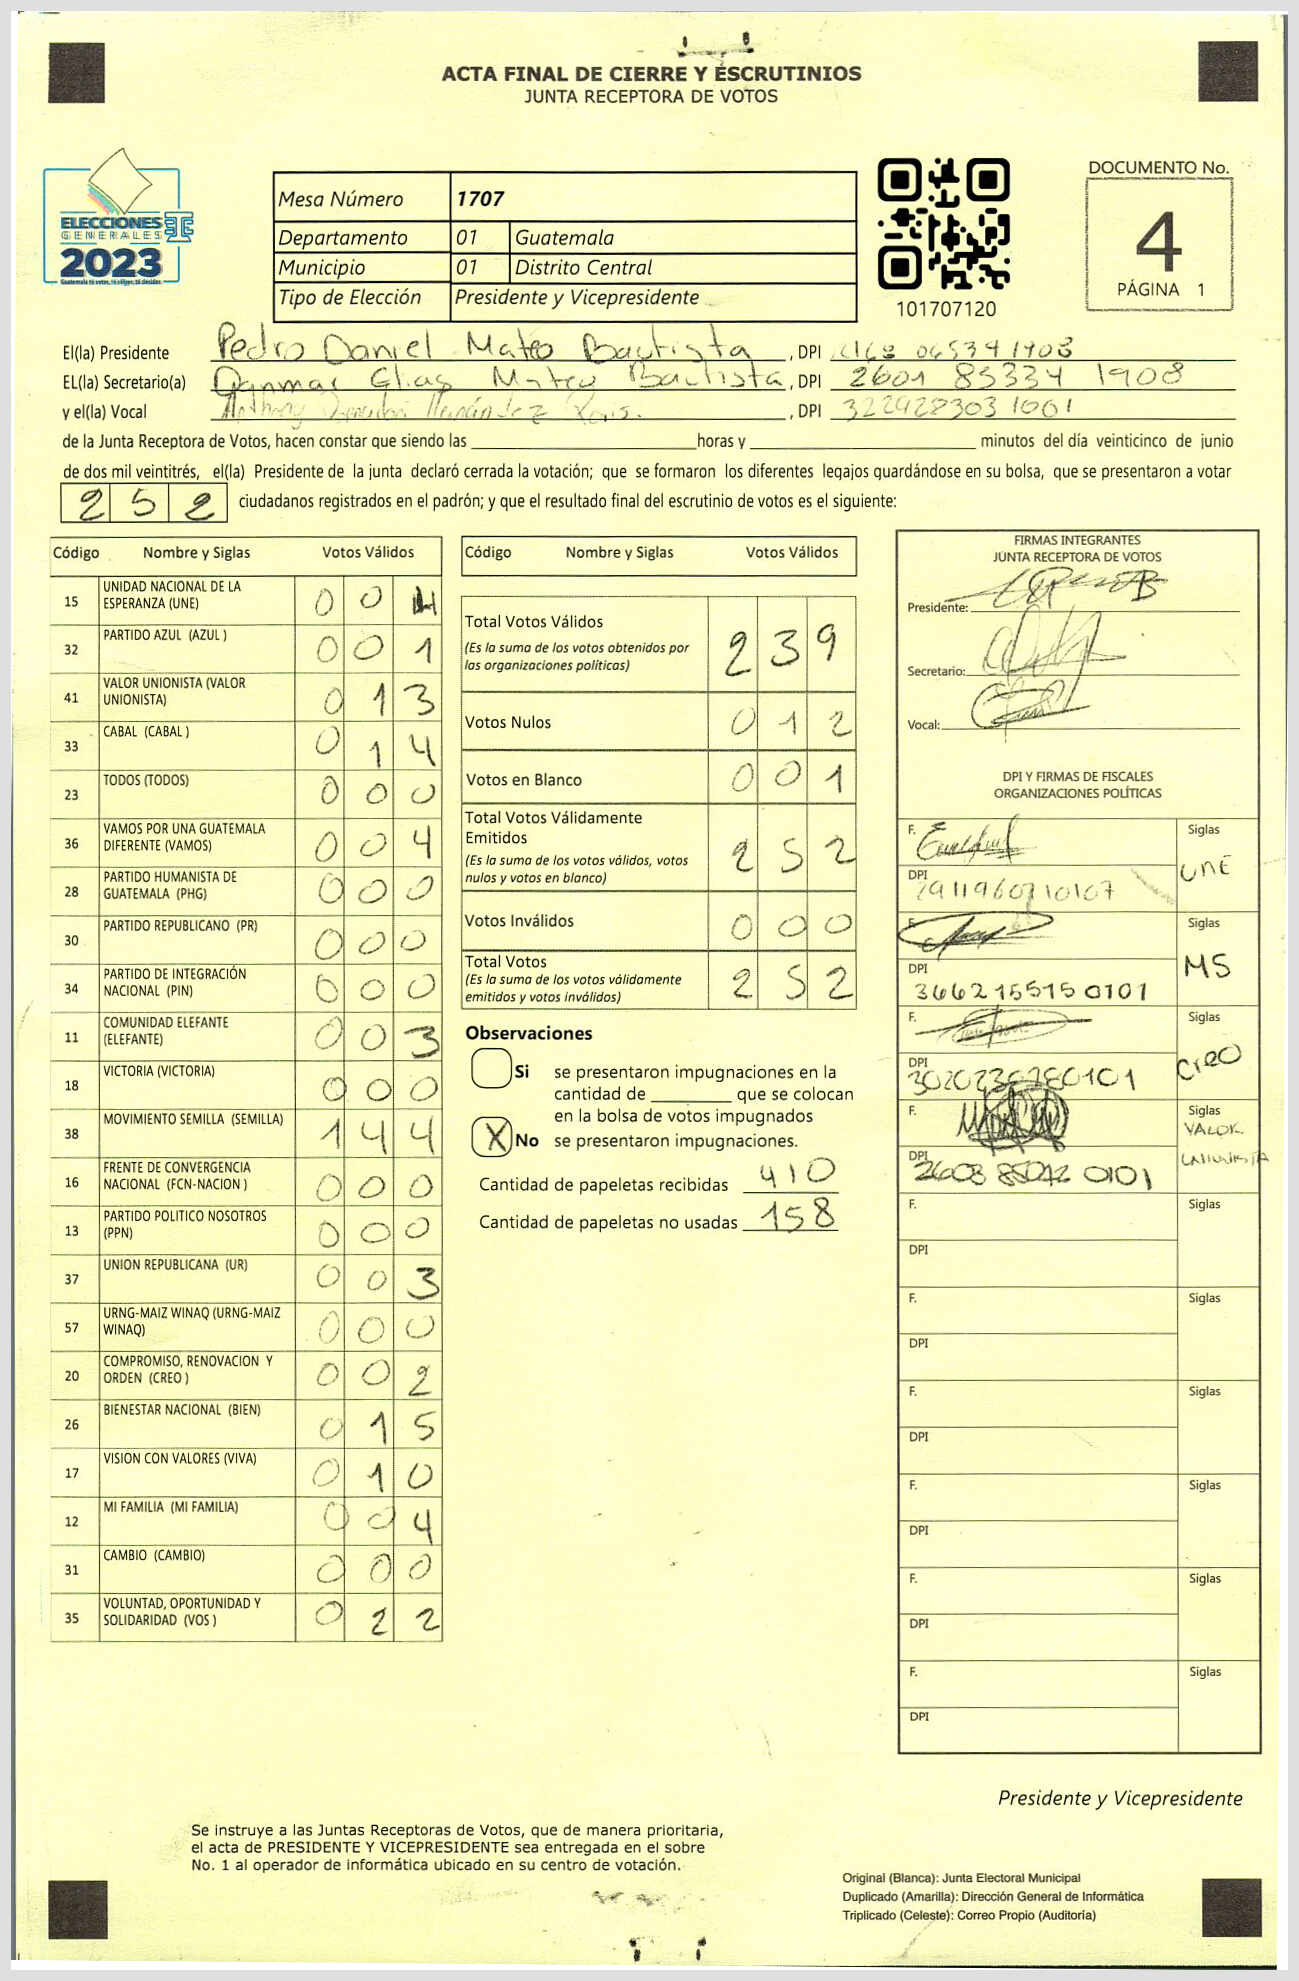 ACTA FINAL DE CIERRE Y ESCRUTINIOS
JUNTA RECEPTORA DE VOTOS
ELECCIONES
GENERALES
2023
Mesa Número 1707
Departamento 01 Guatemala
Municipio 01 Distrito Central
Tipo de Elección Presidente y Vicepresidente
101707120
DOCUMENTO No.
4
PÁGINA 1
El(la) Presidente Pedro Daniel Mateo Bautista, DPI
EL(la) Secretario(a) Elias Mateo Bautista, DPI 2601 85334 1908
y el(la) Vocal Hernández, DPI 322928303 1001
de la Junta Receptora de Votos, hacen constar que siendo las horas y minutos del día veinticinco de junio
de dos mil veintitrés, el(la) Presidente de la junta declaró cerrada la votación; que se formaron los diferentes legajos guardándose en su bolsa, que se presentaron a votar
252 ciudadanos registrados en el padrón; y que el resultado final del escrutinio de votos es el siguiente:
Código Nombre y Siglas Votos Válidos
15 UNIDAD NACIONAL DE LA ESPERANZA (UNE) 0 0 4
32 PARTIDO AZUL (AZUL ) 0 0 1
41 VALOR UNIONISTA (VALOR UNIONISTA) 0 1 3
33 CABAL (CABAL ) 0 1 4
23 TODOS (TODOS) 0 0 0
36 VAMOS POR UNA GUATEMALA DIFERENTE (VAMOS) 0 0 4
28 PARTIDO HUMANISTA DE GUATEMALA (PHG) 0 0 0
30 PARTIDO REPUBLICANO (PR) 0 0 0
34 PARTIDO DE INTEGRACIÓN NACIONAL (PIN) 0 0 0
11 COMUNIDAD ELEFANTE (ELEFANTE) 0 0 3
18 VICTORIA (VICTORIA) 0 0 0
38 MOVIMIENTO SEMILLA (SEMILLA) 1 4 4
16 FRENTE DE CONVERGENCIA NACIONAL (FCN-NACION ) 0 0 0
13 PARTIDO POLITICO NOSOTROS (PPN) 0 0 0
37 UNION REPUBLICANA (UR) 0 0 3
57 URNG-MAIZ WINAQ (URNG-MAIZ WINAQ) 0 0 0
20 COMPROMISO, RENOVACION Y ORDEN (CREO ) 0 0 2
26 BIENESTAR NACIONAL (BIEN) 0 1 5
17 VISION CON VALORES (VIVA) 0 1 0
12 MI FAMILIA (MI FAMILIA) 0 0 4
31 CAMBIO (CAMBIO) 0 0 0
35 VOLUNTAD, OPORTUNIDAD Y SOLIDARIDAD (VOS ) 0 2 2
Código Nombre y Siglas Votos Válidos
Total Votos Válidos 2 3 9
(Es la suma de los votos obtenidos por
las organizaciones políticas)
Votos Nulos 0 1 2
Votos en Blanco 0 0 1
Total Votos Válidamente
Emitidos 2 5 2
(Es la suma de los votos válidos, votos
nulos y votos en blanco)
Votos Inválidos 0 0 0
Total Votos 2 5 2
(Es la suma de los votos válidamente
emitidos y votos inválidos)
Observaciones
Si se presentaron impugnaciones en la
cantidad de que se colocan
en la bolsa de votos impugnados
X No se presentaron impugnaciones.
Cantidad de papeletas recibidas 410
Cantidad de papeletas no usadas 158
FIRMAS INTEGRANTES
JUNTA RECEPTORA DE VOTOS
Presidente:
Secretario:
Vocal:
DPI Y FIRMAS DE FISCALES
ORGANIZACIONES POLÍTICAS
F. Siglas
UNE
DPI
F. Siglas
MS
DPI
3662155150101
F. Siglas
CREO
DPI
F. Siglas
VALOR
UNIONISTA
DPI
F. Siglas
DPI
F. Siglas
DPI
F. Siglas
DPI
F. Siglas
DPI
F. Siglas
DPI
F. Siglas
DPI
Presidente y Vicepresidente
Se instruye a las Juntas Receptoras de Votos, que de manera prioritaria,
el acta de PRESIDENTE Y VICEPRESIDENTE sea entregada en el sobre
No. 1 al operador de informática ubicado en su centro de votación.
Original (Blanca): Junta Electoral Municipal
Duplicado (Amarilla): Dirección General de Informática
Triplicado (Celeste): Correo Propio (Auditoría)